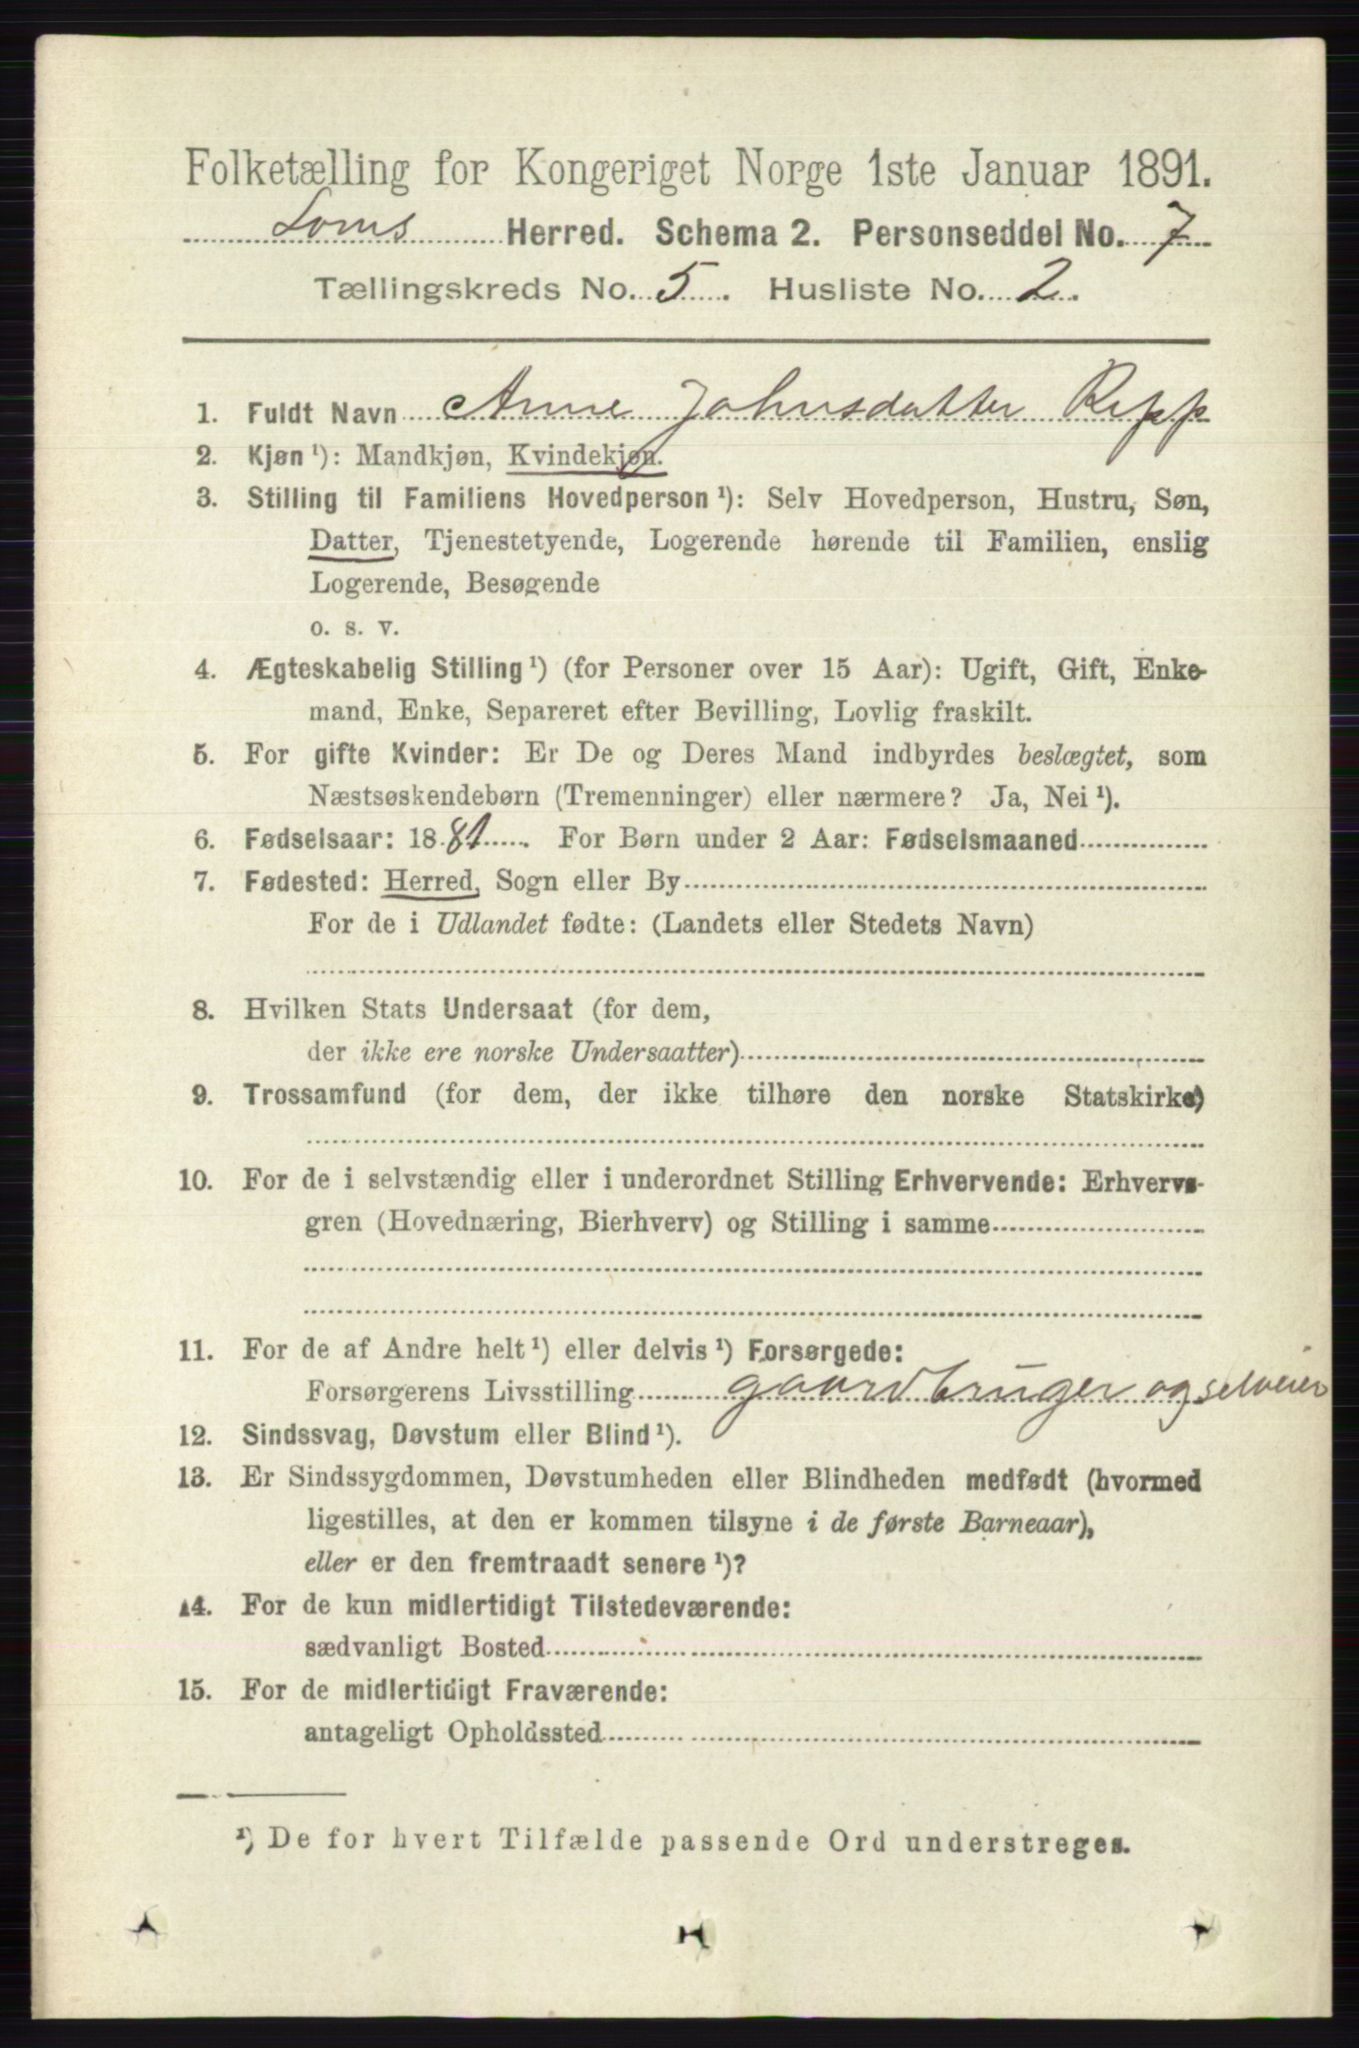 Folketælling for Kongeriget Norge 1ste Januar 1891.
Loms Herred. Schema 2. Personseddel No. 7
Tællingskreds No. 5. Husliste No. 2.
1. Fuldt Navn Anne Johnsdatter Repp
2. Kjøn ¹): Mandkjøn, Kvindekjøn.
3. Stilling til Familiens Hovedperson ¹): Selv Hovedperson, Hustru, Søn,
Datter, Tjenestetyende, Logerende hørende til Familien, enslig
Logerende, Besøgende
o. s. v.
4. Ægteskabelig Stilling ¹) (for Personer over 15 Aar): Ugift, Gift, Enke-
mand, Enke, Separeret efter Bevilling, Lovlig fraskilt.
5. For gifte Kvinder: Er De og Deres Mand indbyrdes beslægtet, som
Næstsøskendebørn (Tremenninger) eller nærmere? Ja, Nei ¹).
6. Fødselsaar: 1881. For Børn under 2 Aar: Fødselsmaaned
7. Fødested: Herred, Sogn eller By
For de i Udlandet fødte: (Landets eller Stedets Navn)
8. Hvilken Stats Undersaat (for dem,
der ikke ere norske Undersaatter)
9. Trossamfund (for dem, der ikke tilhøre den norske Statskirke)
10. For de i selvstændig eller i underordnet Stilling Erhvervende: Erhvervs-
gren (Hovednæring, Bierhverv) og Stilling i samme
11. For de af Andre helt ¹) eller delvis ¹) Forsørgede:
Forsørgerens Livsstilling gaardbruger og selveier
12. Sindssvag, Døvstum eller Blind ¹).
13. Er Sindssygdommen, Døvstumheden eller Blindheden medfødt (hvormed
ligestilles, at den er kommen tilsyne i de første Barneaar),
eller er den fremtraadt senere ¹)?
14. For de kun midlertidigt Tilstedeværende:
sædvanligt Bosted
15. For de midlertidigt Fraværende:
antageligt Opholdssted
¹) De for hvert Tilfælde passende Ord understreges.